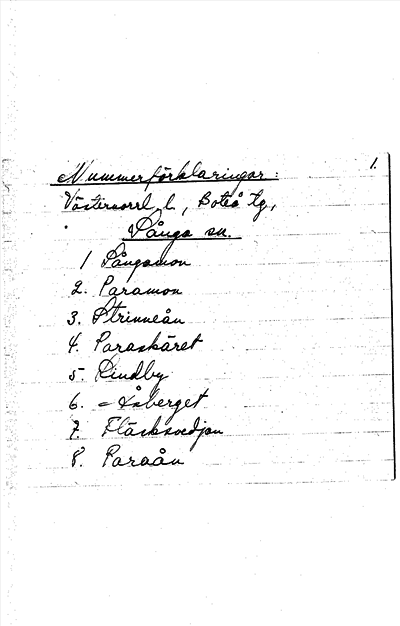 1.
Nummerförklaringar:
Västernorrl. l., Boteå tg,
Sånga sn.
1 Sångamon
2. Paramon
3. Strinneån
4. Paraskäret
5. Rindby
6. - åsberget
7. Fläsksvedjan
8. Paraån